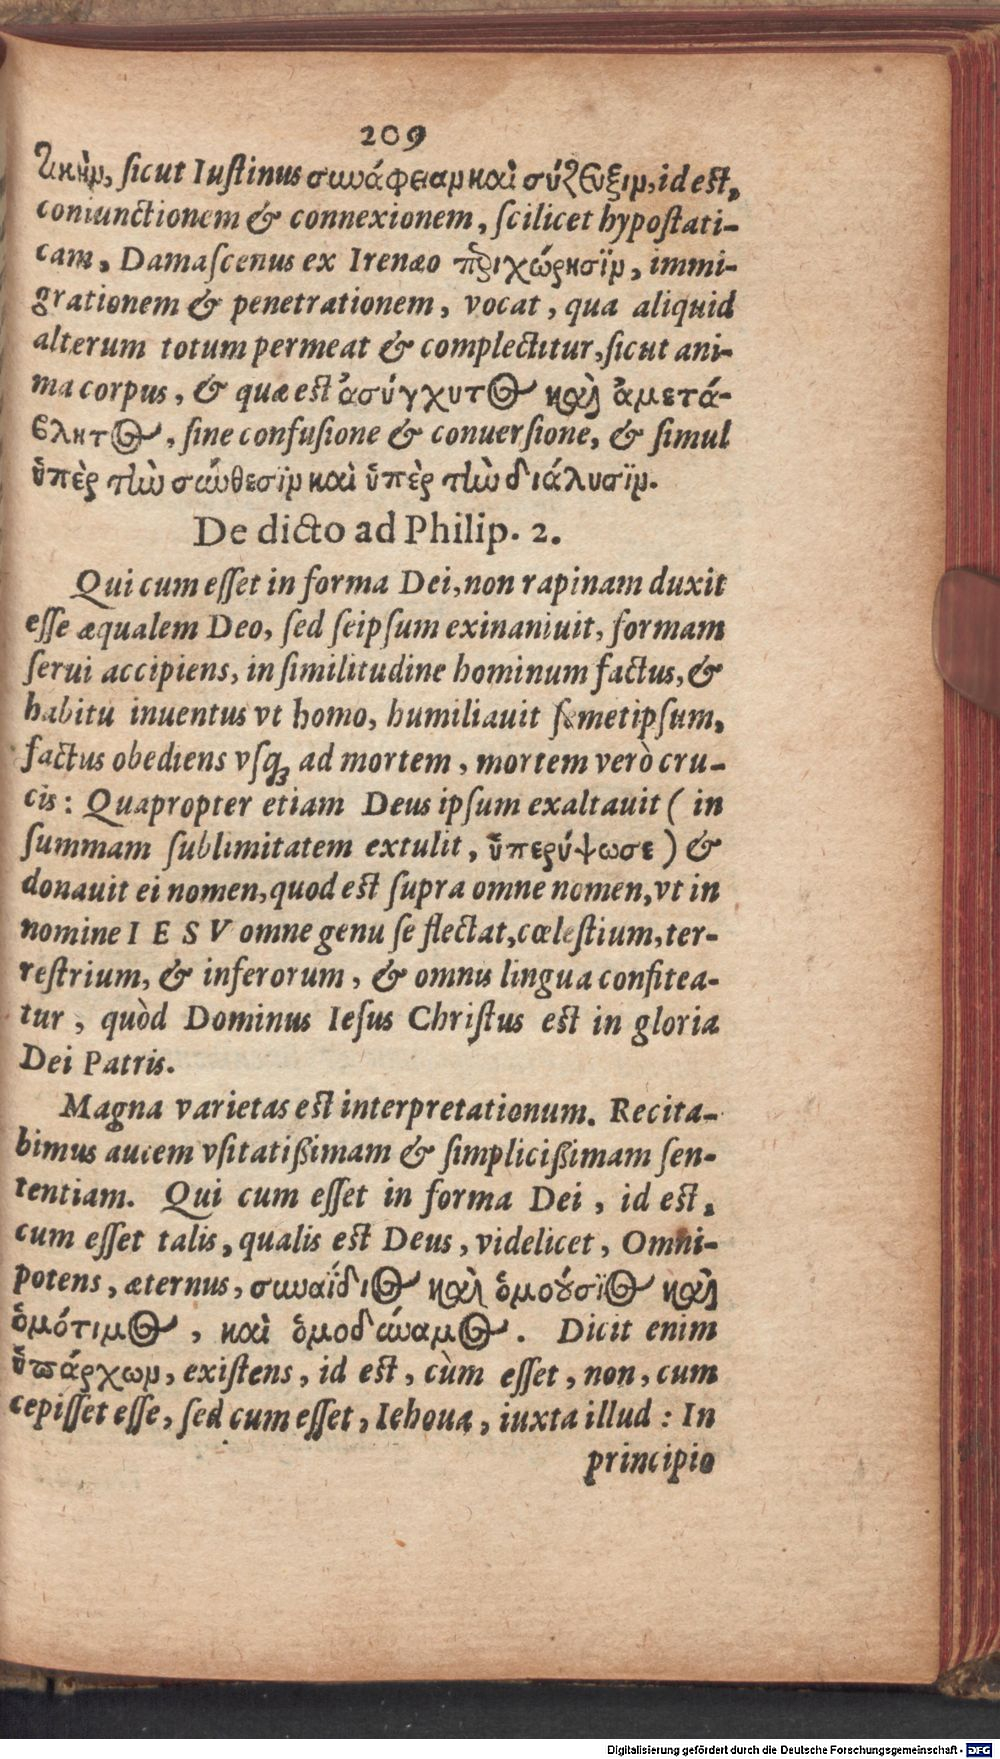 209
τικὴν, sicut Iustinus συνάφειαν καὶ σύζευξιν, id est,
coniunctionem & connexionem, scilicet hypostati-
cam, Damascenus ex Irenæo περιχώρησιν, immi-
grationem & penetrationem, vocat, qua aliquid
alterum totum permeat & complectitur, sicut ani-
ma corpus, & quæ est ἀσύγχυτος καὶ ἀμετά-
βλητος, sine confusione & conuersione, & simul
ὑπὲρ τὴν σύνθεσιν καὶ ὑπὲρ τὴν διάλυσιν.
De dicto ad Philip. 2.
Qui cum esset in forma Dei, non rapinam duxit
esse æqualem Deo, sed seipsum exinaniuit, formam
serui accipiens, in similitudine hominum factus, &
habitu inuentus vt homo, humiliauit semetipsum,
factus obediens vsq; ad mortem, mortem verò cru-
cis: Quapropter etiam Deus ipsum exaltauit ( in
summam sublimitatem extulit, ὑπερύψωσε ) &
donauit ei nomen, quod est supra omne nomen, vt in
nomine IESV omne genu se flectat, cœlestium, ter-
restrium, & inferorum, & omnis lingua confitea-
tur, quòd Dominus Iesus Christus est in gloria
Dei Patris.
Magna varietas est interpretationum. Recita-
bimus autem vsitatißimam & simplicißimam sen-
tentiam. Qui cum esset in forma Dei, id est,
cum esset talis, qualis est Deus, videlicet, Omni-
potens, æternus, συναΐδιος καὶ ὁμούσιος καὶ
ὁμότιμος, καὶ ὁμοδύναμος. Dicit enim
ὑπάρχων, existens, id est, cùm esset, non, cum
cepisset esse, sed cum esset, Iehoua, iuxta illud: In
principio
Digitalisierung gefördert durch die Deutsche Forschungsgemeinschaft - DFG